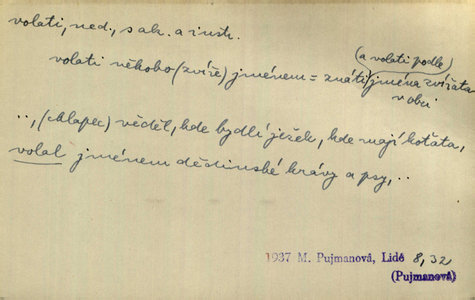 volati, ned., s ak. a instr.
(a volati podle)
volati někoho (zvíře) jménem = znáti jména zvířata
v obci
.., (chlapec) věděl, kde bydlí ježek, kde mají koťata,
volal jménem dědinské krávy a psy, ..
1937 M. Pujmanová, Lidé 8, 32
(Pujmanová)